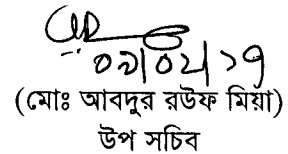 ০৯/০২/১৭
(মোঃ আবদুর রউফ মিয়া)
উপ সচিব